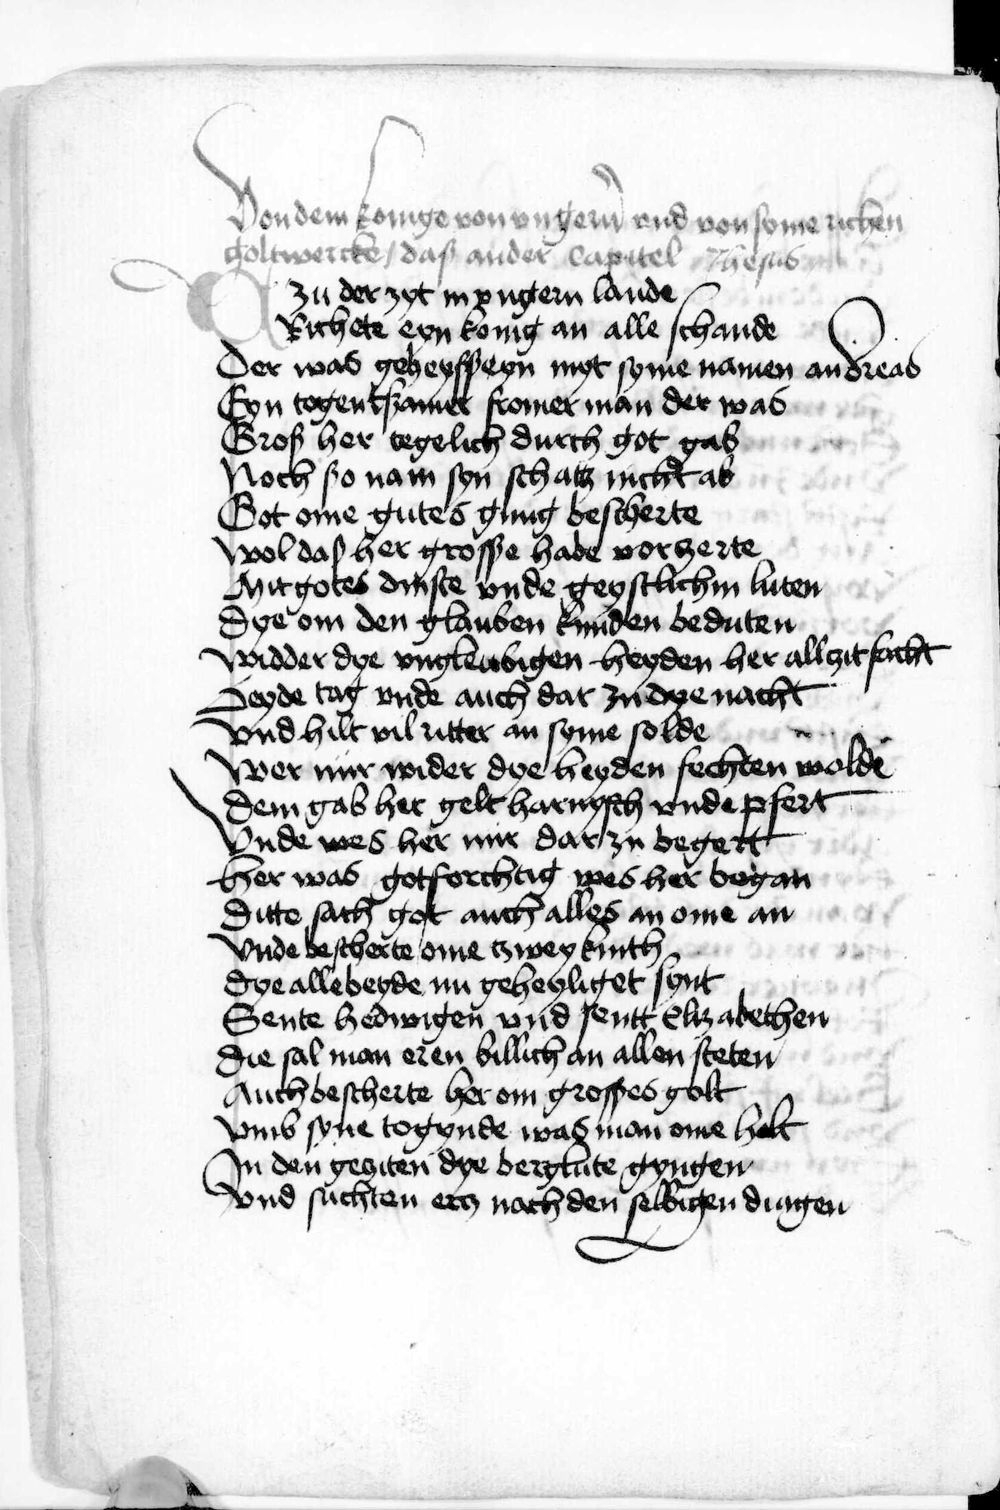 Von dem konige von vngern vnd von syme richen
goltwercke / daß ander Capitel Jhesus
Zu der zyt in vngern lande
Richete eyn konig an alle schande
Der was geheysseyn myt syme namen andreas
Eyn togentsamer fromer man der was
Groß her tegelich durch got gab
Noch so nam syn schatz nicht ab
Got ome gutes gnug bescherte
Wol daß her grosse habe vorzerte
Mit gotes dinste vnde geystlichin luten
Dye om den glauben kunden beduten
Widder dye vngleubigen heyden her allzit facht
Beyde tag vnde auch dar zu dye nacht
Vnd hilt vil ritter an syme solde
Wer mir wider dye heyden fechten wolde
Dem gab her gelt harnysch vnde pfert
Vnde wes her mir dar zu begert
Her was gotforchtig wes her began
Ditte sach got auch alles an ome an
Vnde bescherte ome tzwey kinth
Dye alle beyde nu geheyliget synt
Sente hedwigen vnd sentt Elizabethen
Die sal man eren billich an allen steten
Auch bescherte her om grosses golt
Vmb syne togynde was man ome holt
In den geziten dye berglute gyngen
Vnd suchten ertz nach den selbigen dingen